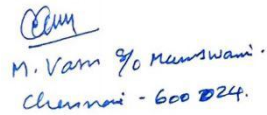 M. Vasu S/o Munuswami.
Chennai - 600 024.